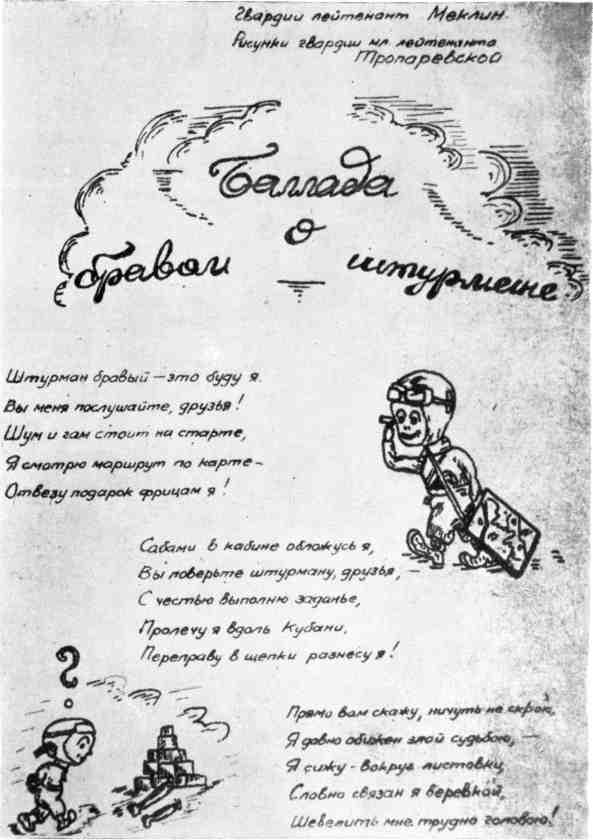 Гвардии лейтенант Меклин.
Рисунки гвардии мл. лейтенанта
Тропаревской
Баллада
о
бравом штурмане
Штурман бравый — это буду я.
Вы меня послушайте, друзья!
Шум и гам стоит на старте,
Я смотрю маршрут по карте –
Отвезу подарок фрицам я!
Сабами в кабине обложусь я,
Вы поверьте штурману, друзья, –
С честью выполню заданье,
Пролечу я вдоль Кубани,
Переправу в щепки разнесу я!
?
Прямо вам скажу, ничуть не скрою,
Я давно обижен злой судьбою, –
Я сижу - вокруг листовки,
Словно связан я веревкой,
Шевелить мне трудно головою!